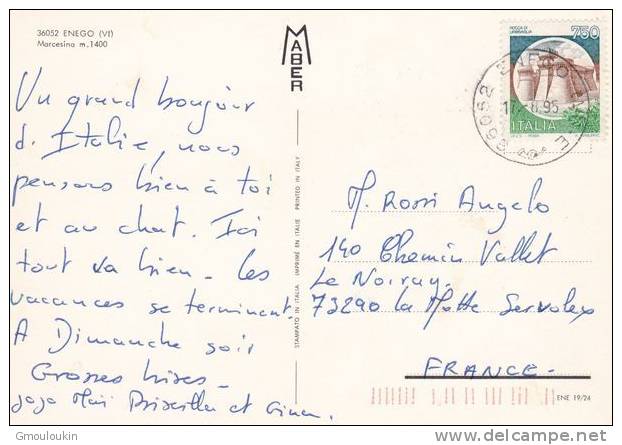 36052 ENEGO (VI)
Marcesina m.1400
MABER
ROCCA DI URBISAGLIA
750
ITALIA
36052
Un grand bonjour
d'Italie, nous
pensons bien à toi
et au chat. Ici
tout va bien - les
vacances se terminent.
A Dimanche soir
Grosses bises -
Priscilla et
M. Rossi Angelo
140 Chemin Vallet
Le Noiray
73290 la Motte Servolex
FRANCE -
STAMPATO IN ITALIA IMPRIMÉ EN ITALIE PRINTED IN ITALY
ENE 19/24
© Gmouloukin
delcampe.net